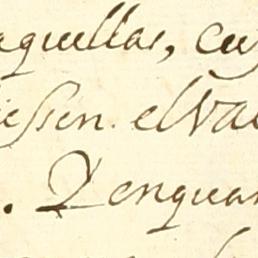 aquellas, cuy
iessen. el Va
. Y enquan